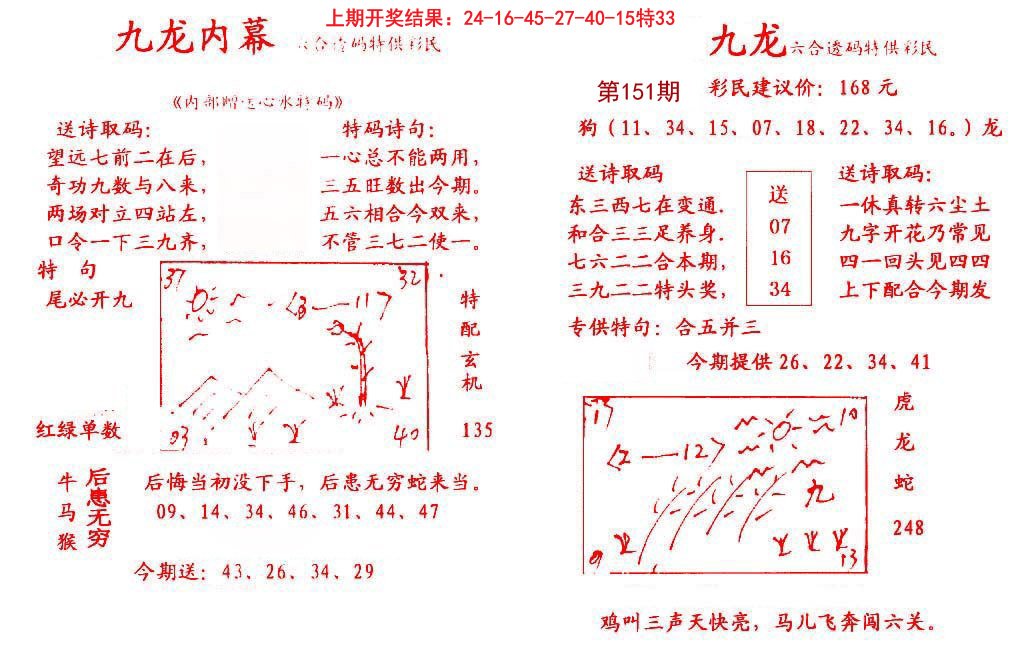 上期开奖结果：24-16-45-27-40-15特33
九龙内幕
六合透码特供彩民
《内部赠送心水特码》
送诗取码：
望远七前二在后，
奇功九数与八来，
两场对立四站左，
口令一下三九齐，
特码诗句：
一心总不能两用，
三五旺数出今期。
五六相合今双来，
不管三七二使一。
特 句
尾必开九
37
32
〈3—11〉
03
40
特配玄机
135
红绿单数
牛马猴
后患无穷
后悔当初没下手，后患无穷蛇来当。
09、14、34、46、31、44、47
今期送：43、26、34、29
九龙六合透码特供彩民
第151期 彩民建议价：168 元
狗（11、34、15、07、18、22、34、16。）龙
送诗取码
东三西七在变通.
和合三三足养身.
七六二二合本期，
三九二二特头奖，
送
07
16
34
送诗取码：
一休真转六尘土
九字开花乃常见
四一回头见四四
上下配合今期发
专供特句：合五并三
今期提供 26、22、34、41
13
10
〈2—12〉
九
9
13
虎龙蛇
248
鸡叫三声天快亮，马儿飞奔闯六关。